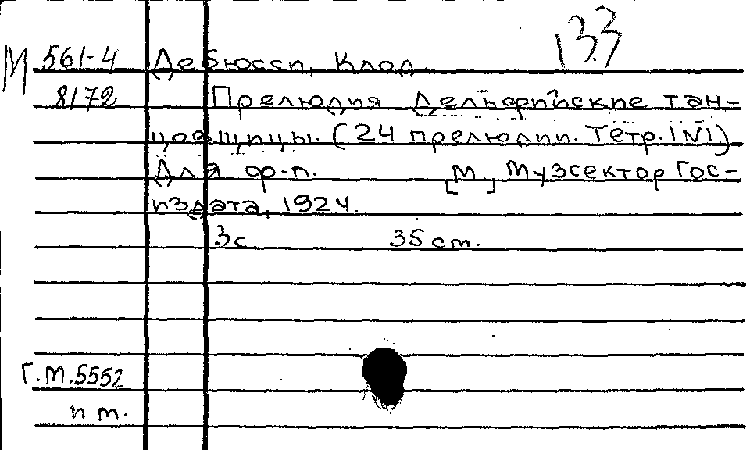 133
М 561-4 Дебюсси, Клод
8172 Прелюдия Дельфийские тан-
цовщицы. (24 прелюдии. Тетр. I N1)
Для ф-п. [М.] Музсектор Гос-
издата, 1924.
3с 35 cm.
Г.М.5552
п т.